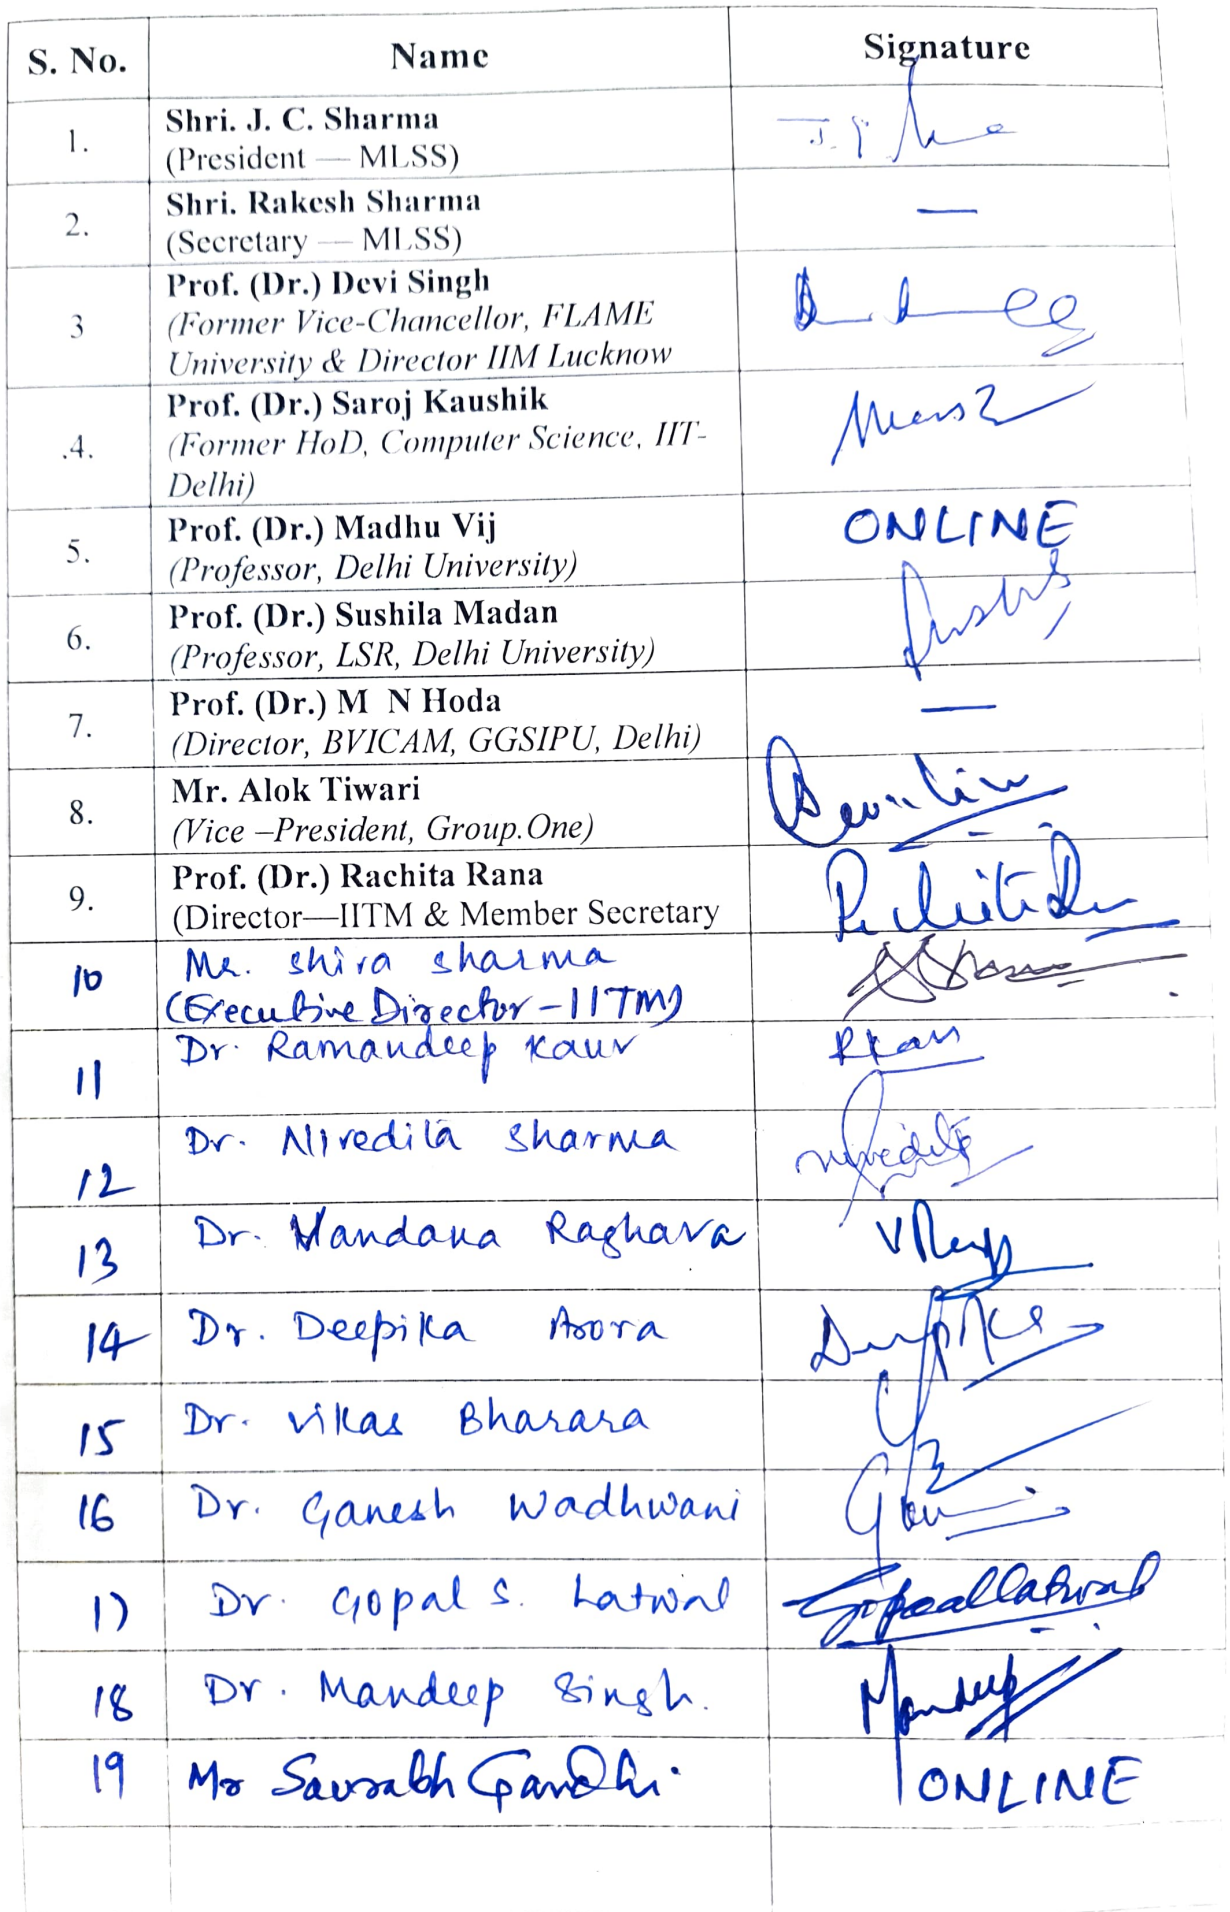 S. No. Name Signature
1. Shri. J. C. Sharma
(President — MLSS)
2. Shri. Rakesh Sharma —
(Secretary — MLSS)
3 Prof. (Dr.) Devi Singh
(Former Vice-Chancellor, FLAME
University & Director IIM Lucknow
.4. Prof. (Dr.) Saroj Kaushik
(Former HoD, Computer Science, IIT-
Delhi)
5. Prof. (Dr.) Madhu Vij ONLINE
(Professor, Delhi University)
6. Prof. (Dr.) Sushila Madan
(Professor, LSR, Delhi University)
7. Prof. (Dr.) M N Hoda —
(Director, BVICAM, GGSIPU, Delhi)
8. Mr. Alok Tiwari
(Vice –President, Group.One)
9. Prof. (Dr.) Rachita Rana
(Director—IITM & Member Secretary
10 Ms. Shiva Sharma
(Executive Director - IITM)
11 Dr. Ramandeep Kaur RKaur
12 Dr. Nivedita Sharma Nivedita
13 Dr. Vandana Raghava
14 Dr. Deepika Arora Deepika
15 Dr. Vikas Bharara
16 Dr. Ganesh Wadhwani
17 Dr. Gopal S. Latwal Gopal Latwal
18 Dr. Mandeep Singh. Mandeep
19 Mr Saurabh Gandhi. ONLINE